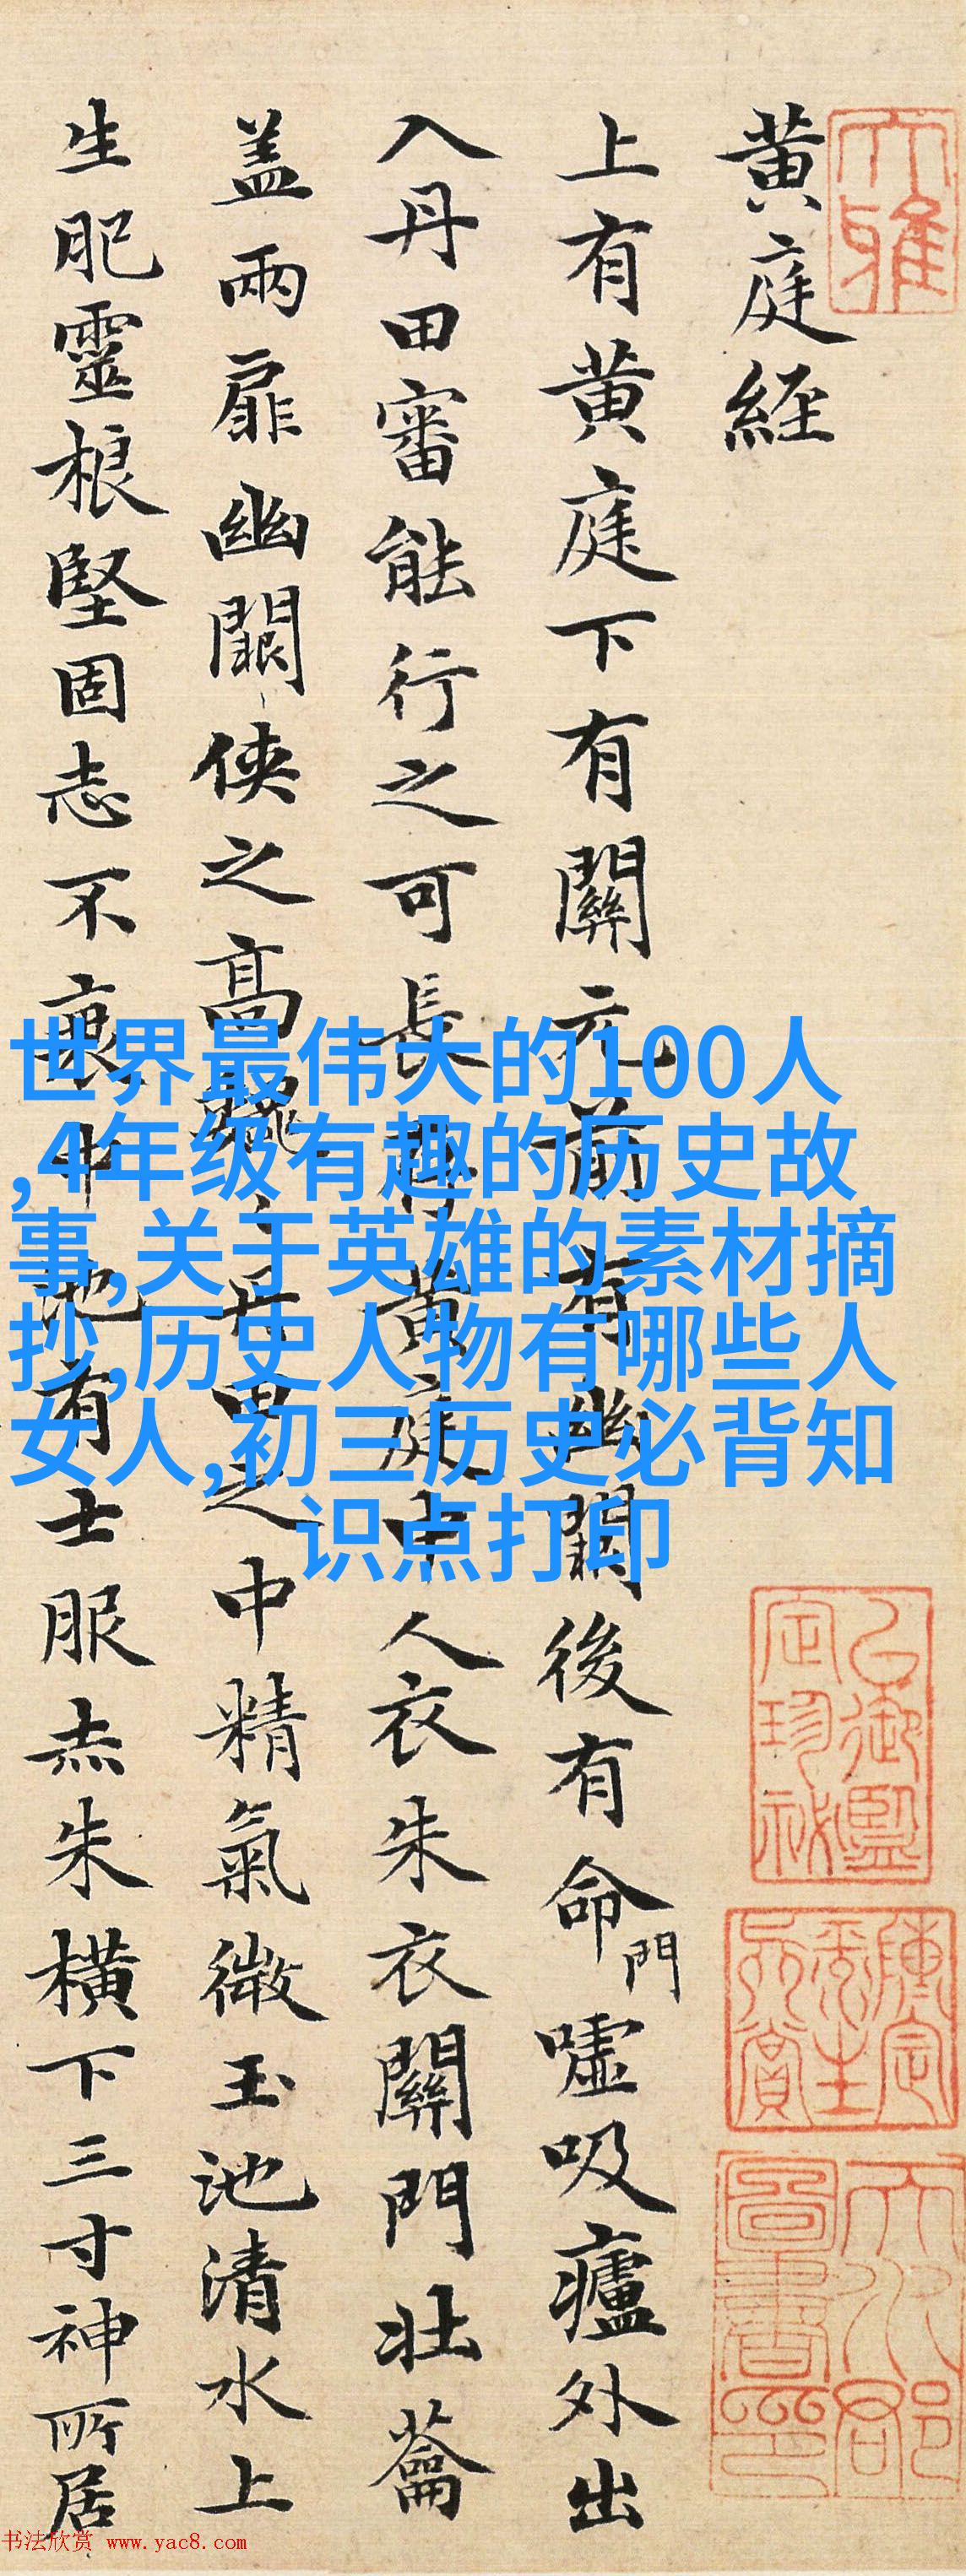 大雅
黄庭經
上有黄庭下有關元前有幽闕後有命門嘘吸廬外出
入丹田審能行之可長存黄庭中人衣朱衣關門壯蘥
盖兩扉幽闕俠之高巍巍丹田之中精氣微玉池清水上
生肥靈根堅固志不衰中池有士服赤朱横下三寸神所居
世界最伟大的100人
,4年级有趣的历史故
事,关于英雄的素材摘
抄,历史人物有哪些人
女人,初三历史必背知
识点打印
书法欣赏 www.yac8.com